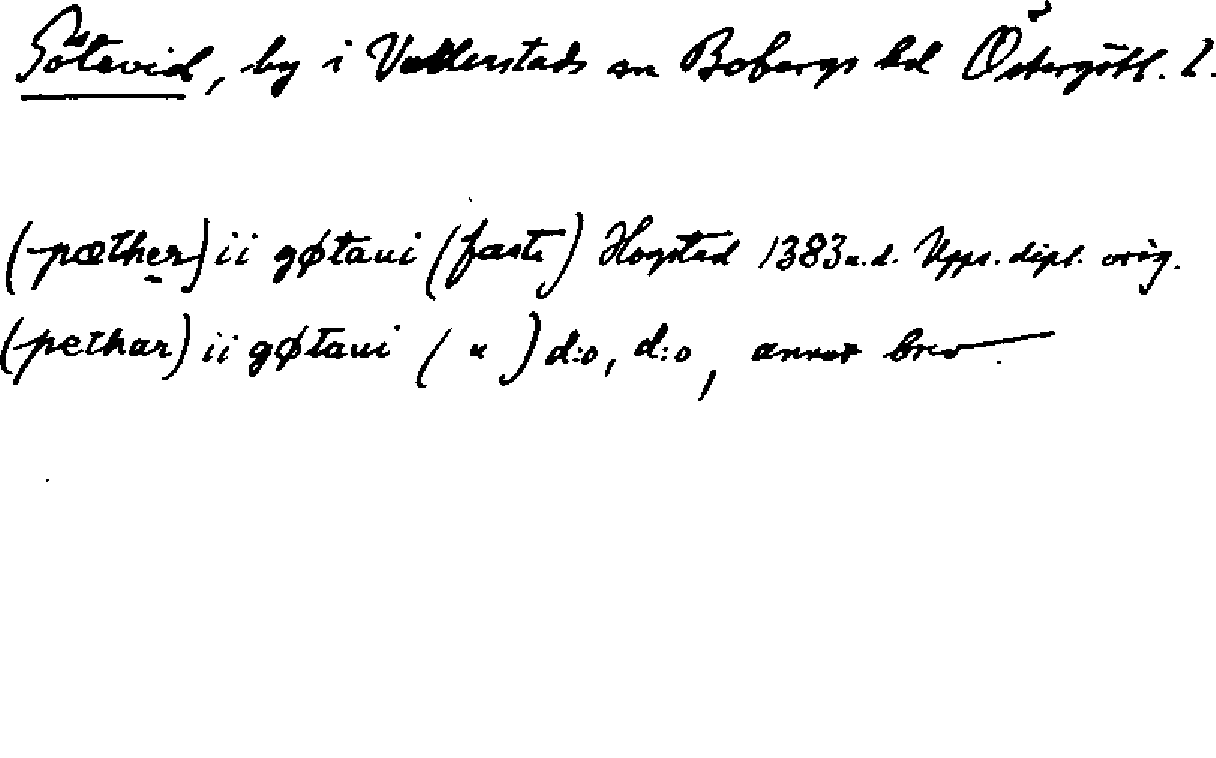 Götevid, by i Vallerstads sn Bobergs hd Östergötl. l.
(-pæther) ii gøtaui (faste) Hogstad 1383 u.d. Upps. dipl. orig.
(-pethar) ii gøtaui ( " ) d:o, d:o, annat brev